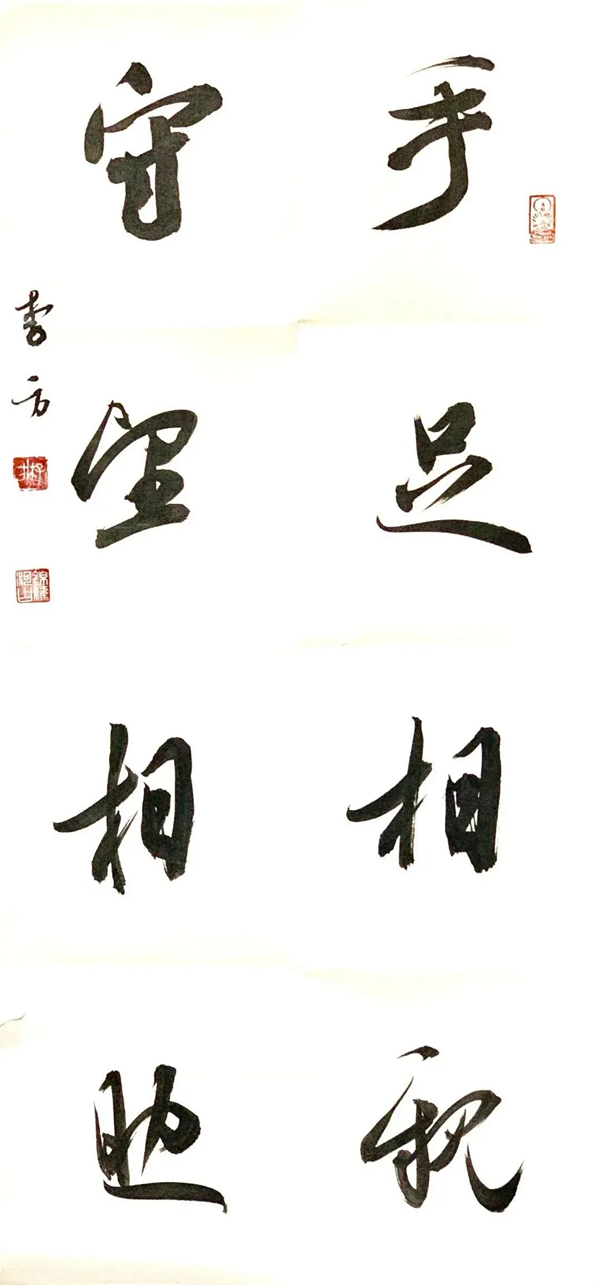 手足相親
守望相助
李方